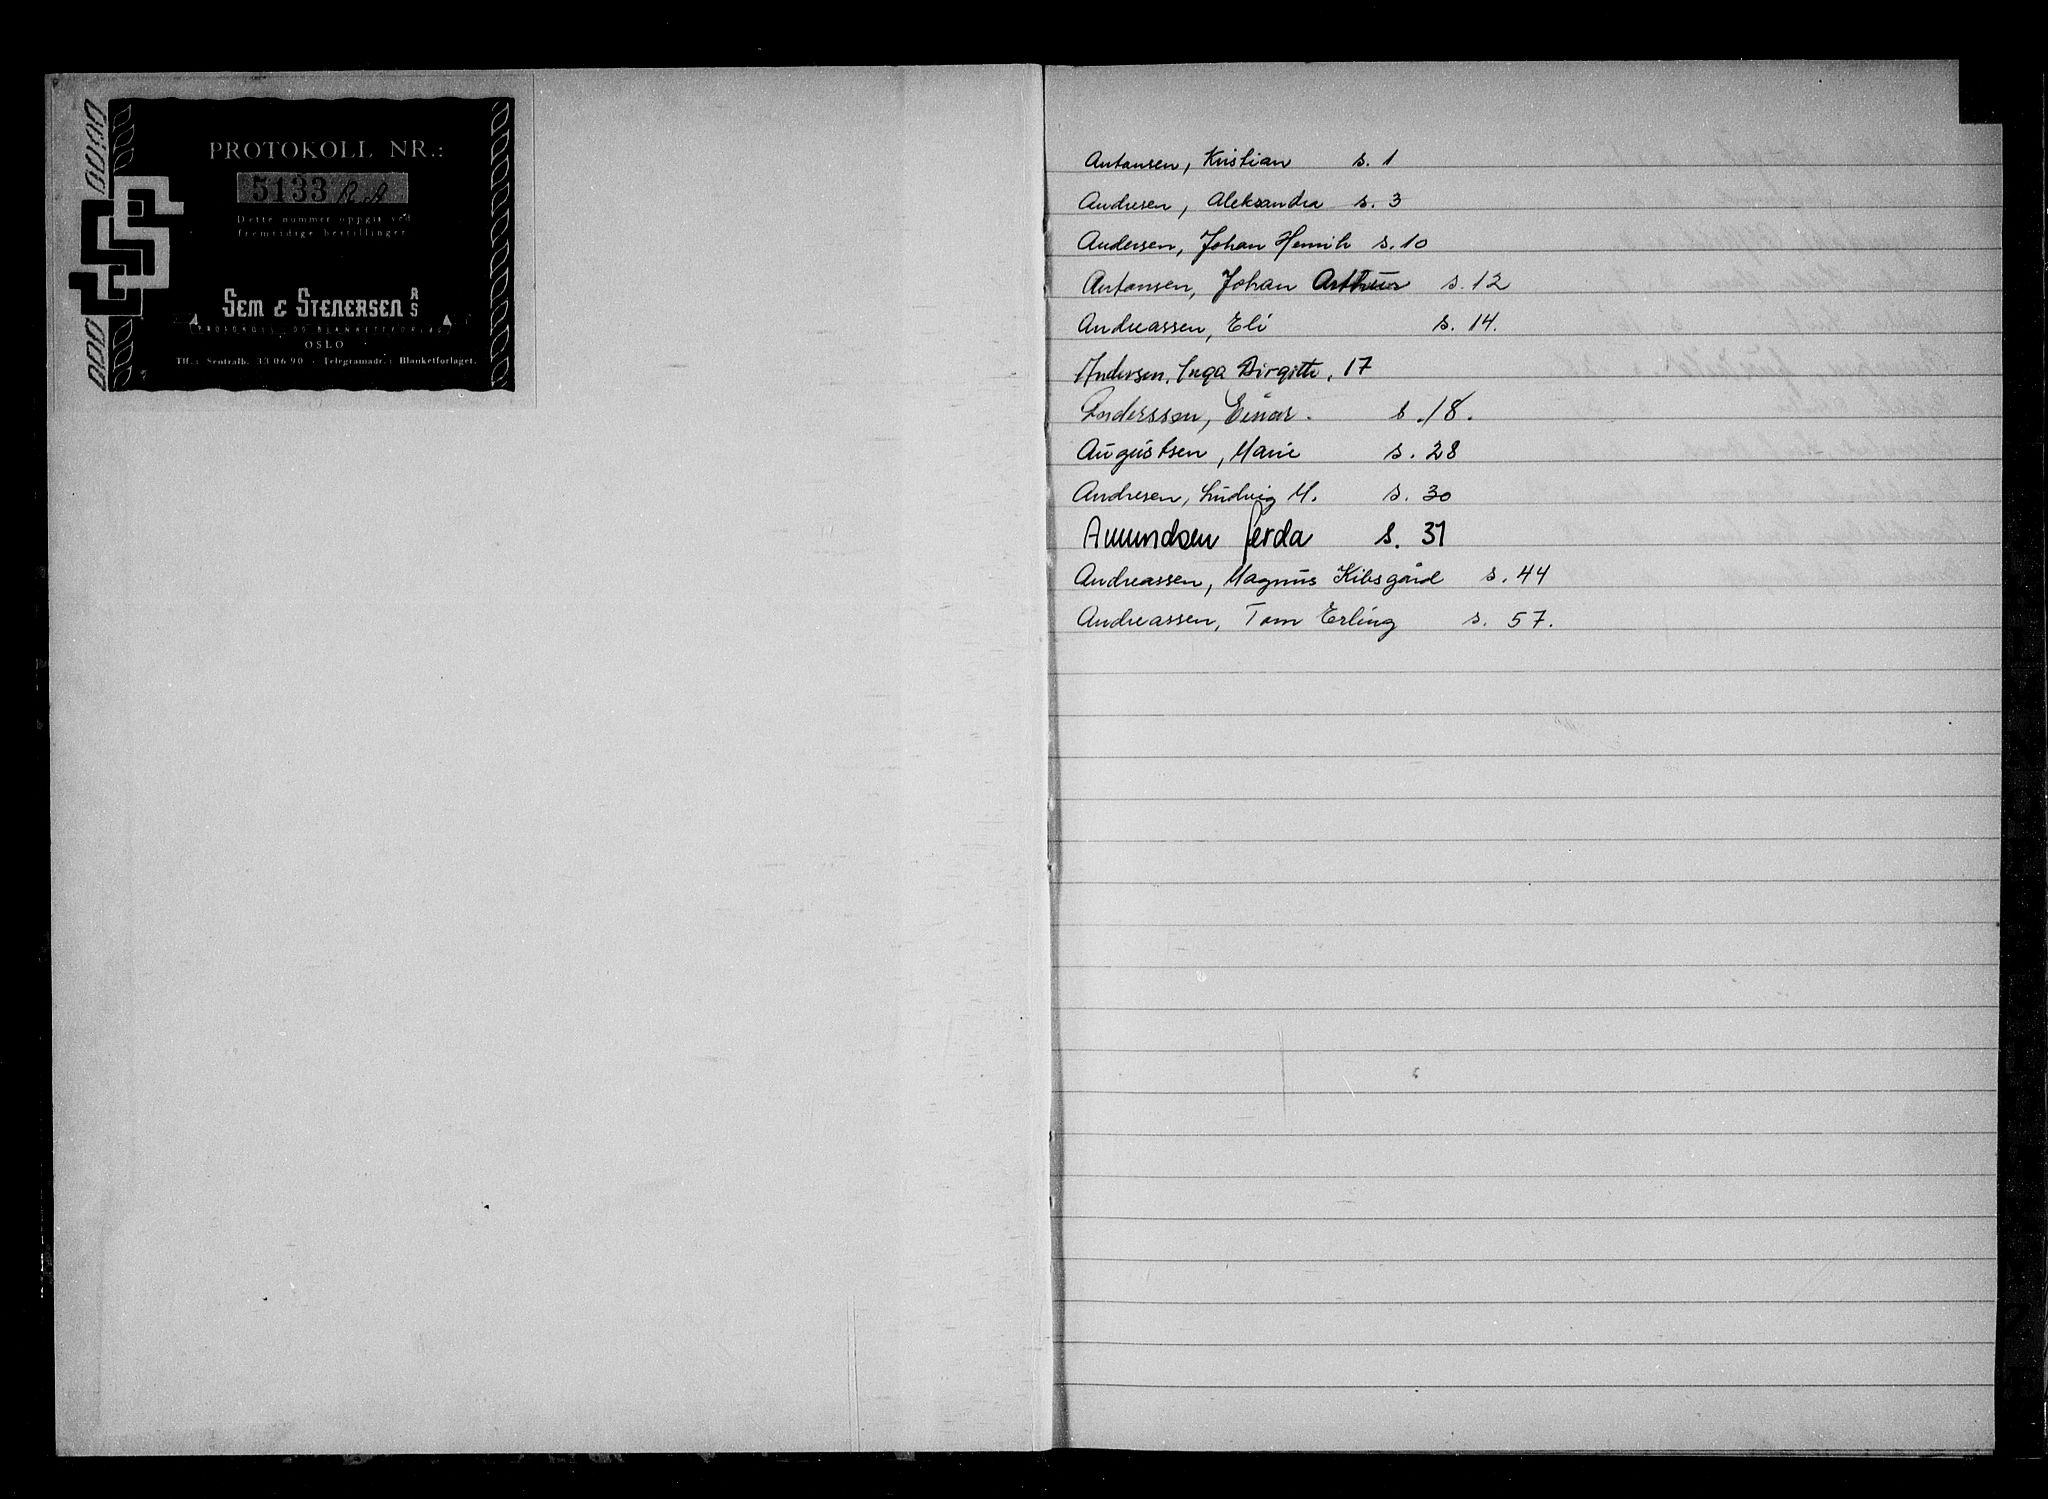 PROTOKOLL NR.:
5133 R.A
Dette nummer oppgis ved
fremtidige bestillinger
SEM & STENERSEN A/S
PROTOKOLL OG BLANKETTFORLAG
OSLO
Tlf.: Sentralb. 33 06 90 - Telegramadr.: Blanketforlaget.
Antonsen, Kristian s. 1
Andresen, Aleksandra s. 3
Andersen, Johan Henrik s. 10
Antonsen, Johan Arthur s. 12
Andreassen, Eli s. 14.
Andersen, Inga Birgitte, 17
Anderssen, Einar. s. 18.
Augustsen, Marie s. 28
Andresen, Ludvig M. s. 30
Amundsen Gerda s. 31
Andreassen, Magnus Kibsgård s. 44
Andreassen, Tom Erling s. 57.